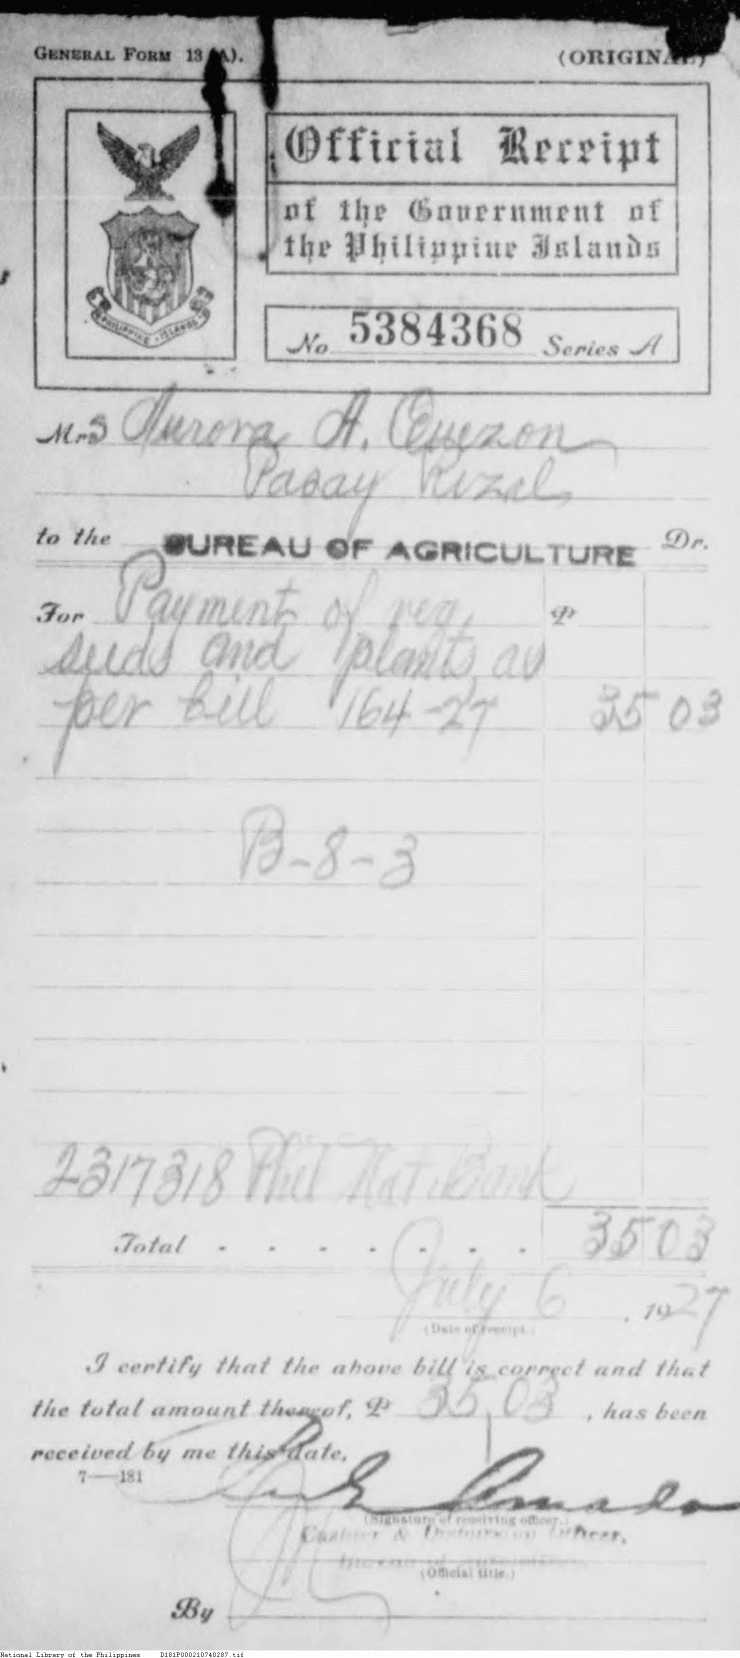 GENERAL FORM 13 (A).
(ORIGINAL)
Official Receipt
of the Government of
the Philippine Islands
PHILIPPINE ISLANDS
No 5384368 Series A
Mrs Aurora A. Quezon
Pasay Rizal
to the BUREAU OF AGRICULTURE Dr.
For Payment of veg. ₱
seeds and plants as
per bill 164-27 35 03
B-8-3
2317318 Phil Nat. Bank
Total . . . . . . . 35 03
July 6, 1927
(Date of receipt.)
I certify that the above bill is correct and that
the total amount thereof, ₱ 35.03, has been
received by me this date.
7—181
Amado
(Signature of receiving officer.)
Cashier & Disbursing Officer,
Bureau of Agriculture
(Official title.)
By
National Library of the Philippines D181P000210740287.tif